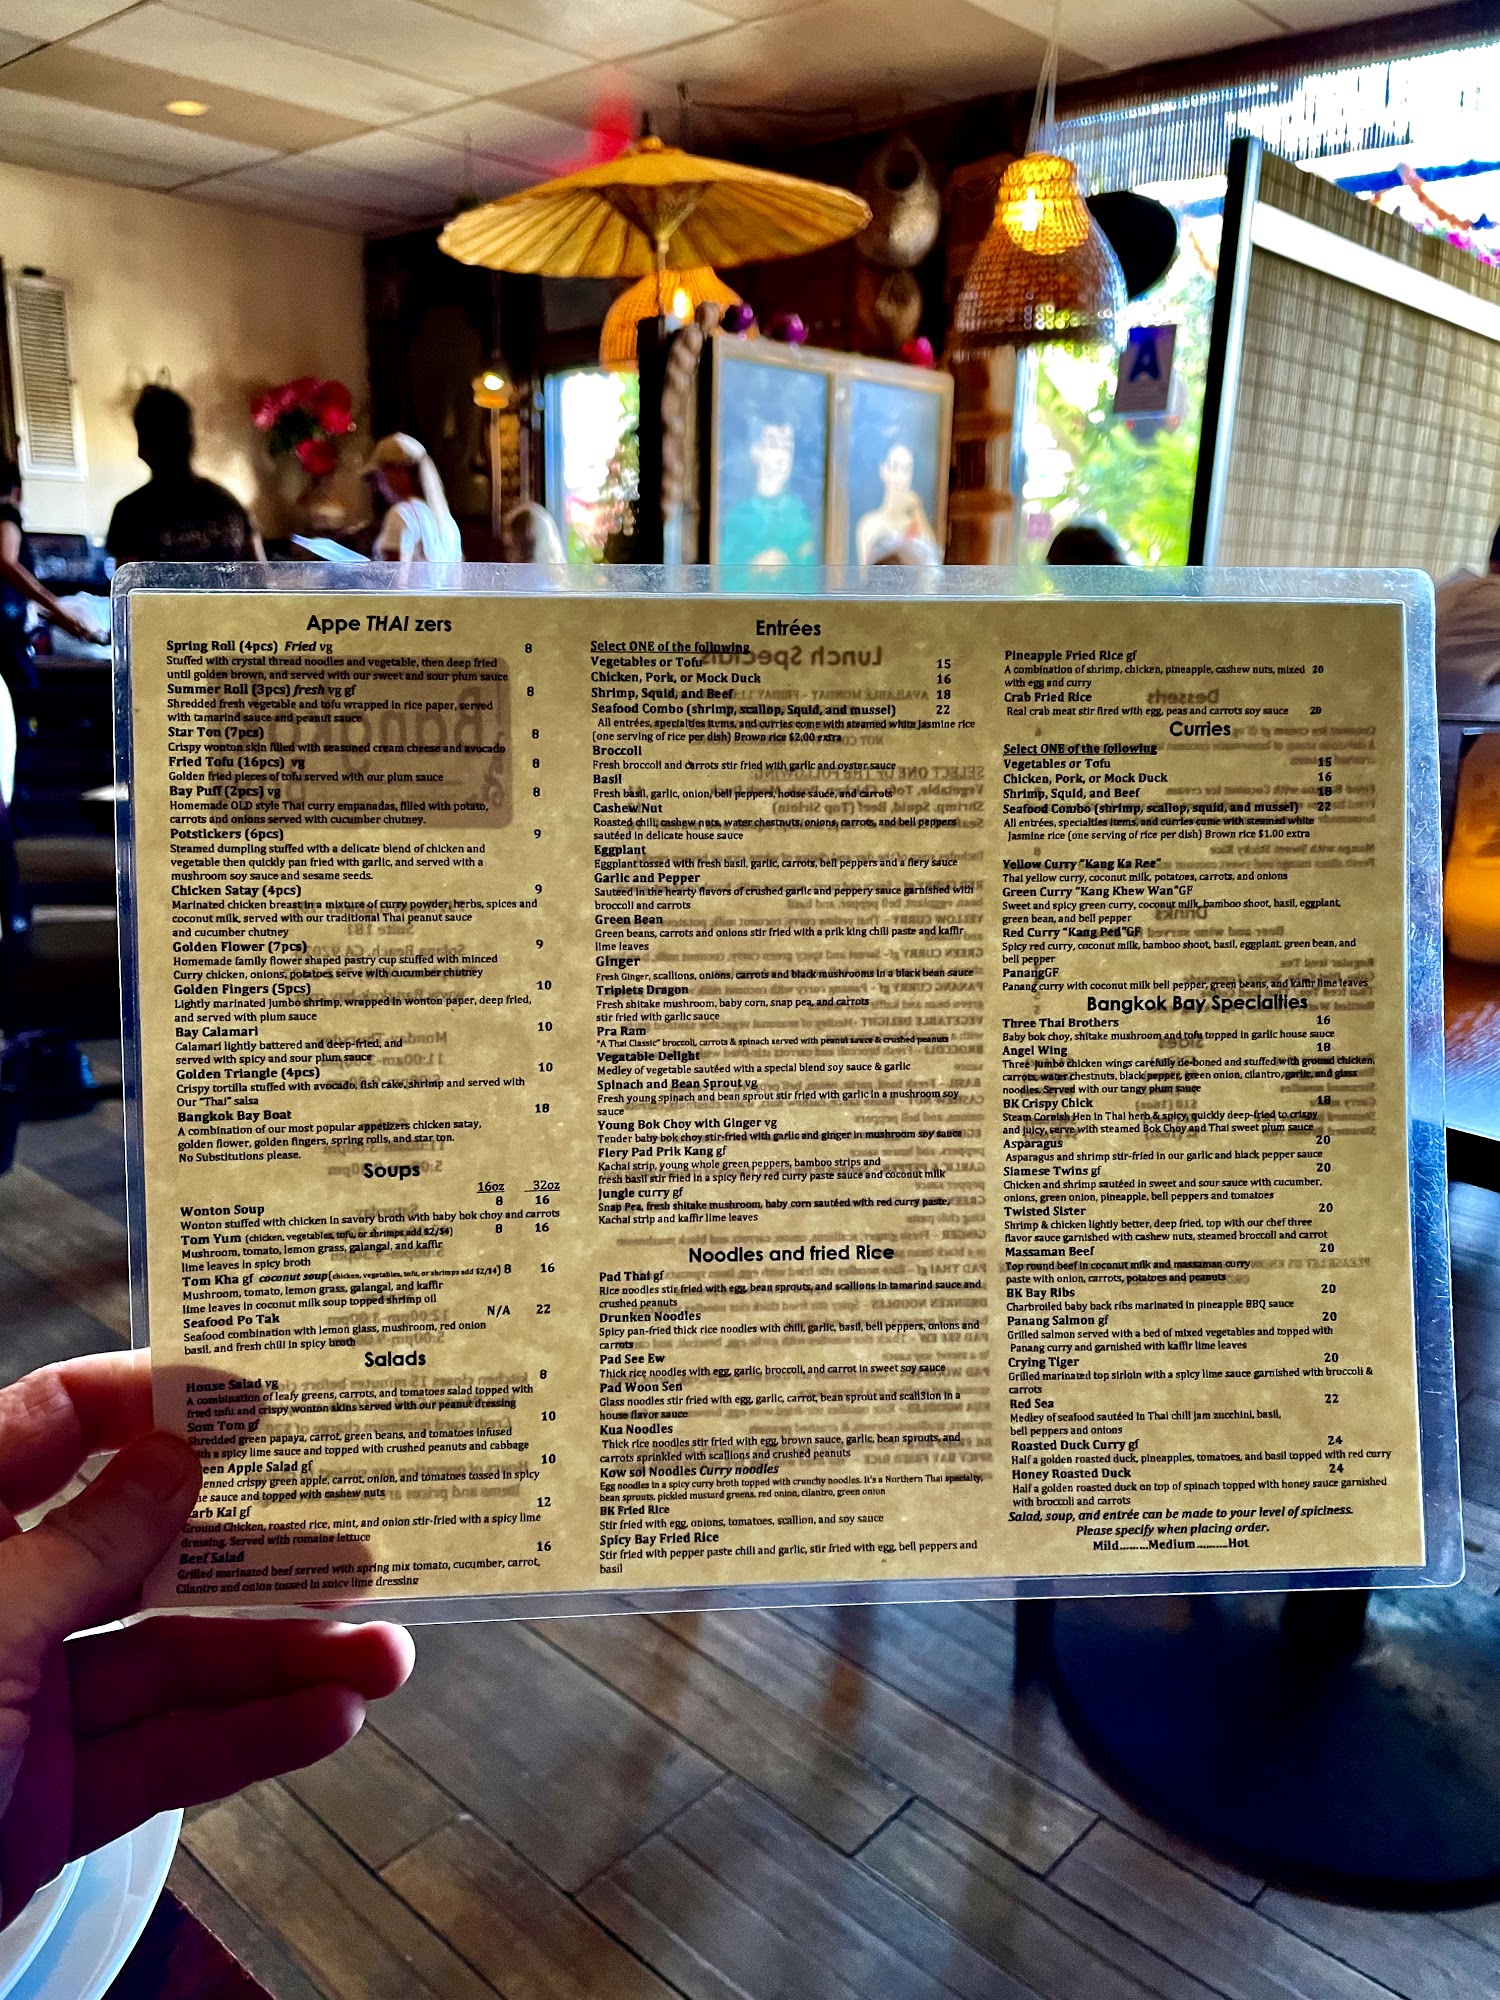 A
Appe THAI zers
Spring Roll (4pcs) Fried vg 8
Stuffed with crystal thread noodles and vegetable, then deep fried
until golden brown, and served with our sweet and sour plum sauce
Summer Roll (3pcs) fresh vg gf 8
Shredded fresh vegetable and tofu wrapped in rice paper, served
with tamarind sauce and peanut sauce
Star Ton (7pcs) 8
Crispy wonton skin filled with seasoned cream cheese and avocado
Fried Tofu (16pcs) vg 8
Golden fried pieces of tofu served with our plum sauce
Bay Puff (2pcs) vg 8
Homemade OLD style Thai curry empanadas, filled with potato,
carrots and onions served with cucumber chutney.
Potstickers (6pcs) 9
Steamed dumpling stuffed with a delicate blend of chicken and
vegetable then quickly pan fried with garlic, and served with a
mushroom soy sauce and sesame seeds.
Chicken Satay (4pcs) 9
Marinated chicken breast in a mixture of curry powder, herbs, spices and
coconut milk, served with our traditional Thai peanut sauce
and cucumber chutney
Golden Flower (7pcs) 9
Homemade family flower shaped pastry cup stuffed with minced
Curry chicken, onions, potatoes serve with cucumber chutney
Golden Fingers (5pcs) 10
Lightly marinated jumbo shrimp, wrapped in wonton paper, deep fried,
and served with plum sauce
Bay Calamari 10
Calamari lightly battered and deep-fried, and
served with spicy and sour plum sauce
Golden Triangle (4pcs) 10
Crispy tortilla stuffed with avocado, fish cake, shrimp and served with
Our "Thai" salsa
Bangkok Bay Boat 18
A combination of our most popular appetizers chicken satay,
golden flower, golden fingers, spring rolls, and star ton.
No Substitutions please.
Soups
16oz 32oz
Wonton Soup 8 16
Wonton stuffed with chicken in savory broth with baby bok choy and carrots
Tom Yum (chicken, vegetables, tofu, or shrimps add $2/$4) 8 16
Mushroom, tomato, lemon grass, galangal, and kaffir
lime leaves in spicy broth
Tom Kha gf coconut soup(chicken, vegetables, tofu, or shrimps add $2/$4) 8 16
Mushroom, tomato, lemon grass, galangal, and kaffir
lime leaves in coconut milk soup topped shrimp oil
Seafood Po Tak N/A 22
Seafood combination with lemon glass, mushroom, red onion
basil, and fresh chili in spicy broth
Salads
House Salad vg 8
A combination of leafy greens, carrots, and tomatoes salad topped with
fried tofu and crispy wonton skins served with our peanut dressing
Som Tom gf 10
Shredded green papaya, carrot, green beans, and tomatoes infused
with a spicy lime sauce and topped with crushed peanuts and cabbage
een Apple Salad gf 10
enned crispy green apple, carrot, onion, and tomatoes tossed in spicy
e sauce and topped with cashew nuts
arb Kai gf 12
Ground Chicken, roasted rice, mint, and onion stir-fried with a spicy lime
dressing. Served with romaine lettuce
Beef Salad 16
Grilled marinated beef served with spring mix tomato, cucumber, carrot,
Cilantro and onion tossed in spicy lime dressing
Entrées
Select ONE of the following
Vegetables or Tofu 15
Chicken, Pork, or Mock Duck 16
Shrimp, Squid, and Beef 18
Seafood Combo (shrimp, scallop, Squid, and mussel) 22
All entrées, specialties items, and curries come with steamed white jasmine rice
(one serving of rice per dish) Brown rice $2.00 extra
Broccoli
Fresh broccoli and carrots stir fried with garlic and oyster sauce
Basil
Fresh basil, garlic, onion, bell peppers, house sauce, and carrots
Cashew Nut
Roasted chili, cashew nuts, water chestnuts, onions, carrots, and bell peppers
sautéed in delicate house sauce
Eggplant
Eggplant tossed with fresh basil, garlic, carrots, bell peppers and a fiery sauce
Garlic and Pepper
Sauteed in the hearty flavors of crushed garlic and peppery sauce garnished with
broccoli and carrots
Green Bean
Green beans, carrots and onions stir fried with a prik king chili paste and kaffir
lime leaves
Ginger
Fresh Ginger, scallions, onions, carrots and black mushrooms in a black bean sauce
Triplets Dragon
Fresh shitake mushroom, baby corn, snap pea, and carrots
stir fried with garlic sauce
Pra Ram
"A Thai Classic" broccoli, carrots & spinach served with peanut sauce & crushed peanuts
Vegatable Delight
Medley of vegetable sautéed with a special blend soy sauce & garlic
Spinach and Bean Sprout vg
Fresh young spinach and bean sprout stir fried with garlic in a mushroom soy
sauce
Young Bok Choy with Ginger vg
Tender baby bok choy stir-fried with garlic and ginger in mushroom soy sauce
Fiery Pad Prik Kang gf
Kachai strip, young whole green peppers, bamboo strips and
fresh basil stir fried in a spicy fiery red curry paste sauce and coconut milk
Jungle curry gf
Snap Pea, fresh shitake mushroom, baby corn sautéed with red curry paste,
Kachai strip and kaffir lime leaves
Noodles and fried Rice
Pad Thai gf
Rice noodles stir fried with egg, bean sprouts, and scallions in tamarind sauce and
crushed peanuts
Drunken Noodles
Spicy pan-fried thick rice noodles with chili, garlic, basil, bell peppers, onions and
carrots
Pad See Ew
Thick rice noodles with egg, garlic, broccoli, and carrot in sweet soy sauce
Pad Woon Sen
Glass noodles stir fried with egg, garlic, carrot, bean sprout and scallion in a
house flavor sauce
Kua Noodles
Thick rice noodles stir fried with egg, brown sauce, garlic, bean sprouts, and
carrots sprinkled with scallions and crushed peanuts
Kow soi Noodles Curry noodles
Egg noodles in a spicy curry broth topped with crunchy noodles. It's a Northern Thai specialty,
bean sprouts, pickled mustard greens, red onion, cilantro, green onion
BK Fried Rice
Stir fried with egg, onions, tomatoes, scallion, and soy sauce
Spicy Bay Fried Rice
Stir fried with pepper paste chili and garlic, stir fried with egg, bell peppers and
basil
Pineapple Fried Rice gf
A combination of shrimp, chicken, pineapple, cashew nuts, mixed 20
with egg and curry
Crab Fried Rice
Real crab meat stir fired with egg, peas and carrots soy sauce 20
Curries
Select ONE of the following
Vegetables or Tofu 15
Chicken, Pork, or Mock Duck 16
Shrimp, Squid, and Beef 18
Seafood Combo (shrimp, scallop, squid, and mussel) 22
All entrées, specialties items, and curries come with steamed white
Jasmine rice (one serving of rice per dish) Brown rice $1.00 extra
Yellow Curry "Kang Ka Ree"
Thai yellow curry, coconut milk, potatoes, carrots, and onions
Green Curry "Kang Khew Wan"GF
Sweet and spicy green curry, coconut milk, bamboo shoot, basil, eggplant,
green bean, and bell pepper
Red Curry "Kang Ped"GF
Spicy red curry, coconut milk, bamboo shoot, basil, eggplant, green bean, and
bell pepper
PanangGF
Panang curry with coconut milk bell pepper, green beans, and kaffir lime leaves
Bangkok Bay Specialties
Three Thai Brothers 16
Baby bok choy, shitake mushroom and tofu topped in garlic house sauce
Angel Wing 18
Three jumbo chicken wings carefully de-boned and stuffed with ground chicken,
carrots, water chestnuts, black pepper, green onion, cilantro, garlic, and glass
noodles. Served with our tangy plum sauce
BK Crispy Chick 18
Steam Cornish Hen in Thai herb & spicy, quickly deep-fried to crispy
and juicy, serve with steamed Bok Choy and Thai sweet plum sauce
Asparagus 20
Asparagus and shrimp stir-fried in our garlic and black pepper sauce
Siamese Twins gf 20
Chicken and shrimp sautéed in sweet and sour sauce with cucumber,
onions, green onion, pineapple, bell peppers and tomatoes
Twisted Sister 20
Shrimp & chicken lightly better, deep fried, top with our chef three
flavor sauce garnished with cashew nuts, steamed broccoli and carrot
Massaman Beef 20
Top round beef in coconut milk and massaman curry
paste with onion, carrots, potatoes and peanuts
BK Bay Ribs 20
Charbroiled baby back ribs marinated in pineapple BBQ sauce
Panang Salmon gf 20
Grilled salmon served with a bed of mixed vegetables and topped with
Panang curry and garnished with kaffir lime leaves
Crying Tiger 20
Grilled marinated top sirloin with a spicy lime sauce garnished with broccoli &
carrots
Red Sea 22
Medley of seafood sautéed in Thai chili jam zucchini, basil,
bell peppers and onions
Roasted Duck Curry gf 24
Half a golden roasted duck, pineapples, tomatoes, and basil topped with red curry
Honey Roasted Duck 24
Half a golden roasted duck on top of spinach topped with honey sauce garnished
with broccoli and carrots
Salad, soup, and entrée can be made to your level of spiciness.
Please specify when placing order.
Mild.........Medium..........Hot